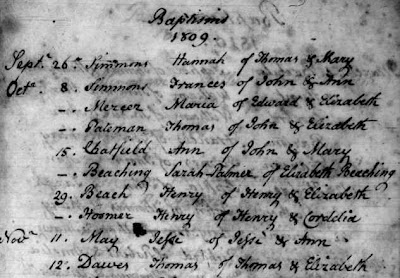 Baptisms
1809.
Septr. 26th. Simmons Hannah of Thomas & Mary
Octr. 8. Simmons Frances of John & Ann
–. Mercer Maria of Edward & Elizabeth
–. Pateman Thomas of John & Elizabeth
15. Chatfield Ann of John & Mary
–. Beaching Sarah Palmer of Elizabeth Beaching
29. Beach Henry of Henry & Elizabeth
–. Hosmer Henry of Henry & Cordelia
Novr. 11. May Jesse of Jesse & Ann
12. Dawes Thomas of Thomas & Elizabeth